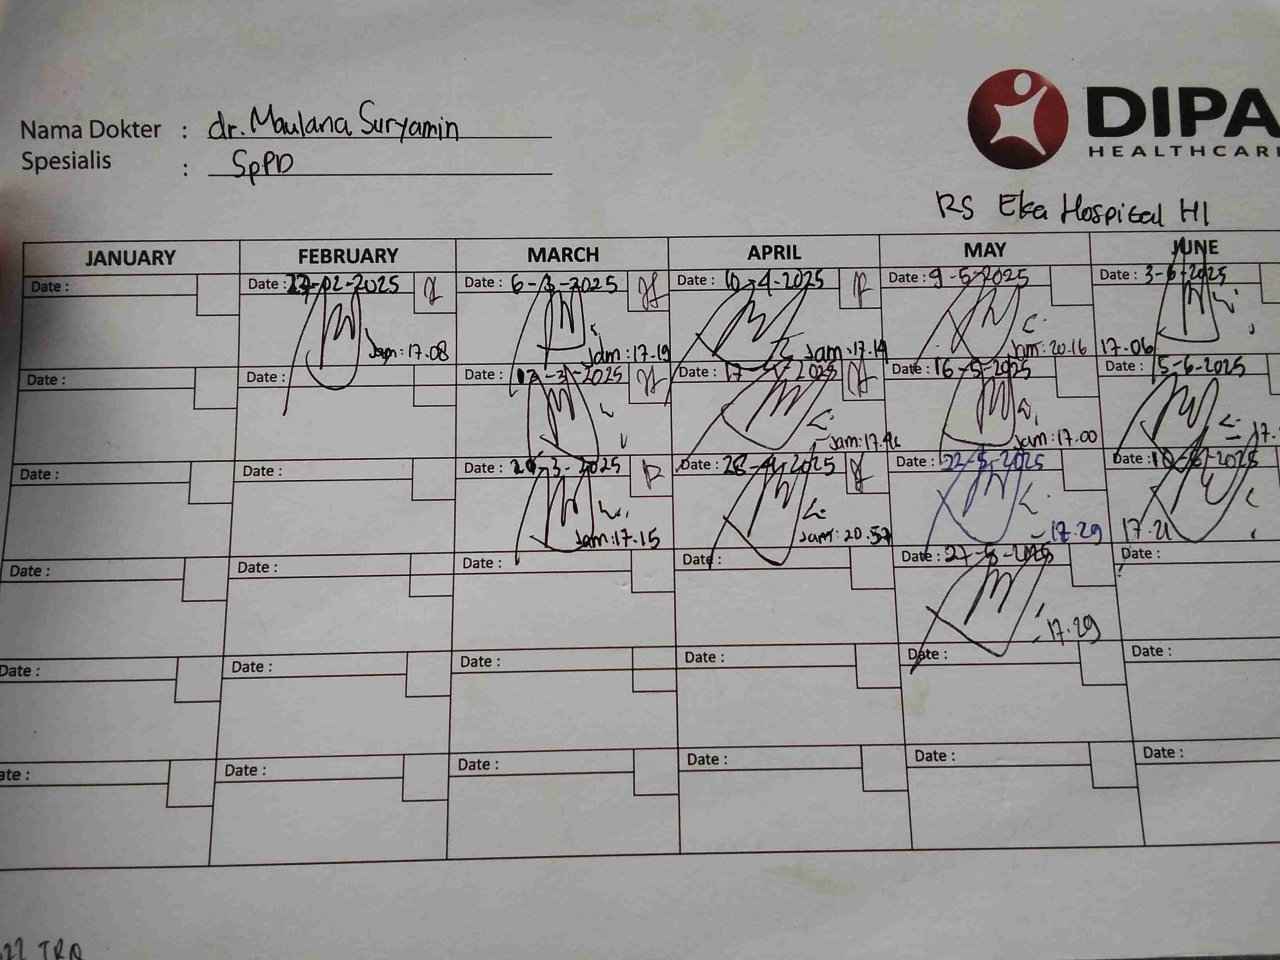 DIPA
HEALTHCAR
Nama Dokter : dr. Maulana Suryamin
Spesialis : SpPD
RS Eka Hospital HI
JANUARY FEBRUARY MARCH APRIL MAY JUNE
Date : Date : 27-02-2025 Date : 6-3-2025 Date : 10-4-2025 Date : 9-5-2025 Date : 3-6-2025
Jam: 17.08 Jam: 17.19 Jam: 17.19 Jam: 20.16 17.06
Date : Date : Date : -3-2025 Date : 17- 2025 Date : 16-5-2025 Date : 5-6-2025
Jam: Jam: 17.00 17.
Date : Date : Date : -3-2025 Date : 28-4-2025 Date : 22-5-2025 Date : 2025
Jam: 17.15 Jam: 20.57 17.29 17.21
Date : Date : Date : Date : Date : 27-5-2025 Date :
17.29
Date : Date : Date : Date : Date : Date :
ate : Date : Date : Date : Date : Date :